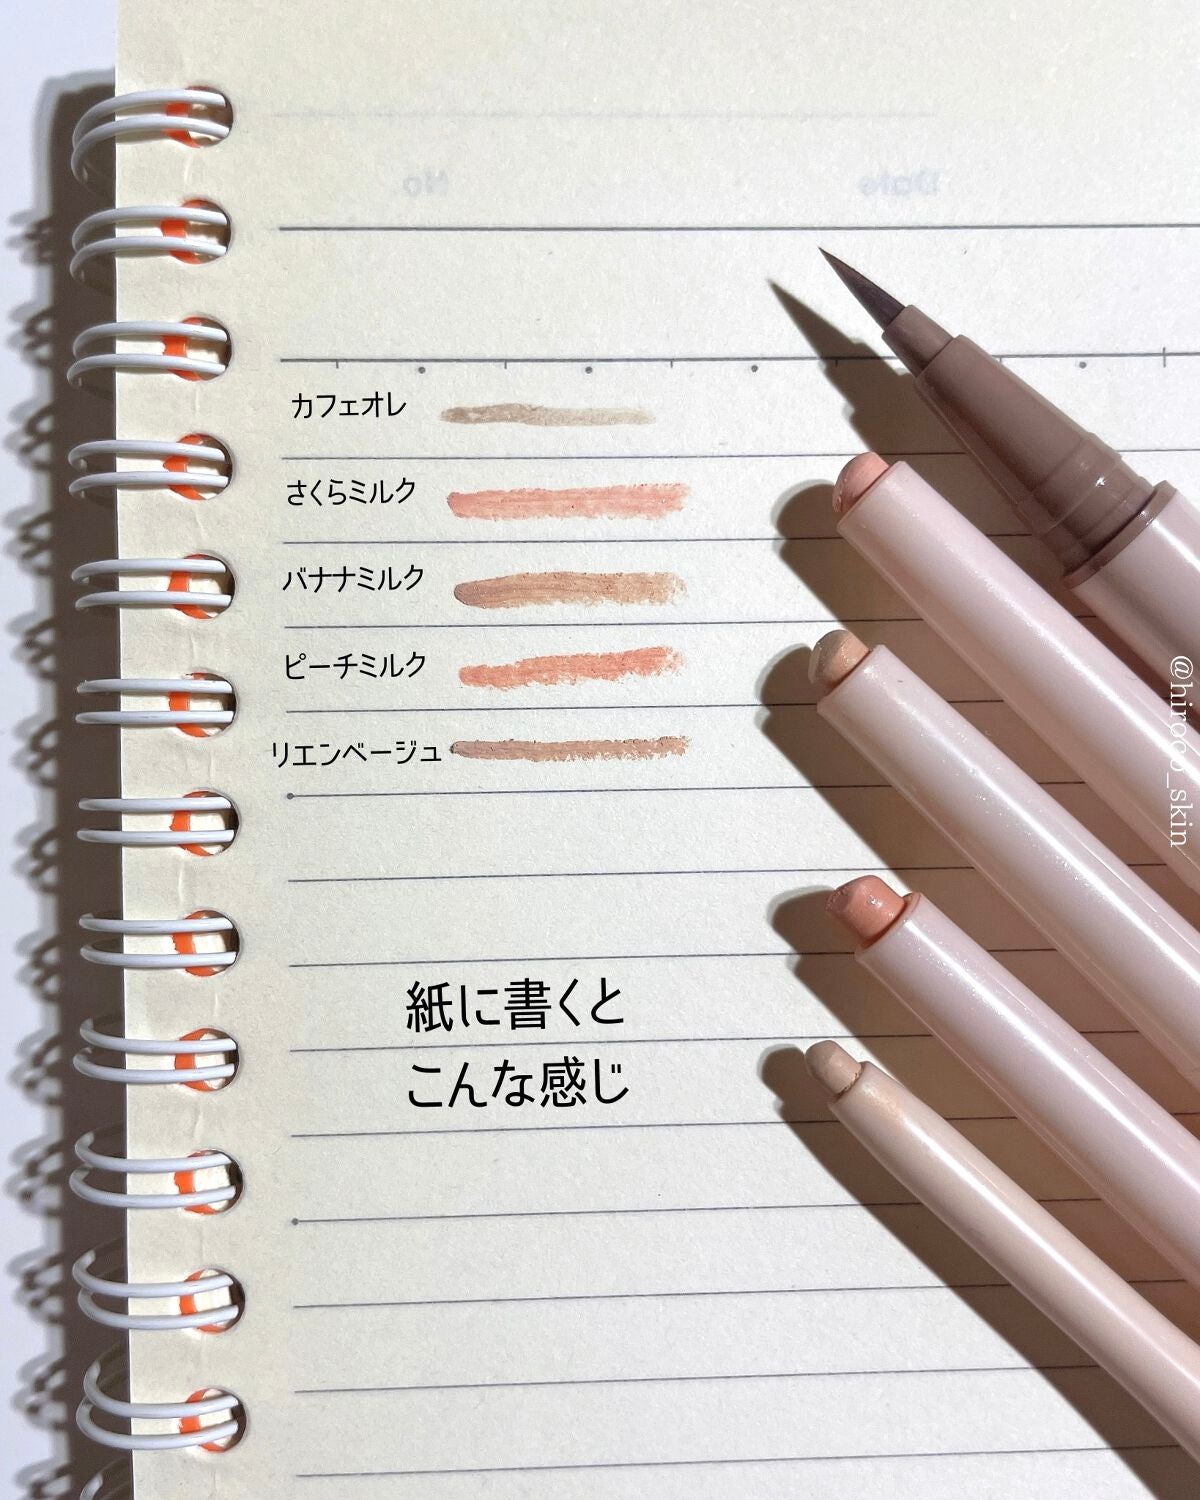 No
Date
カフェオレ
さくらミルク
バナナミルク
ピーチミルク
リエンベージュ
紙に書くと
こんな感じ
@hiroco_skin